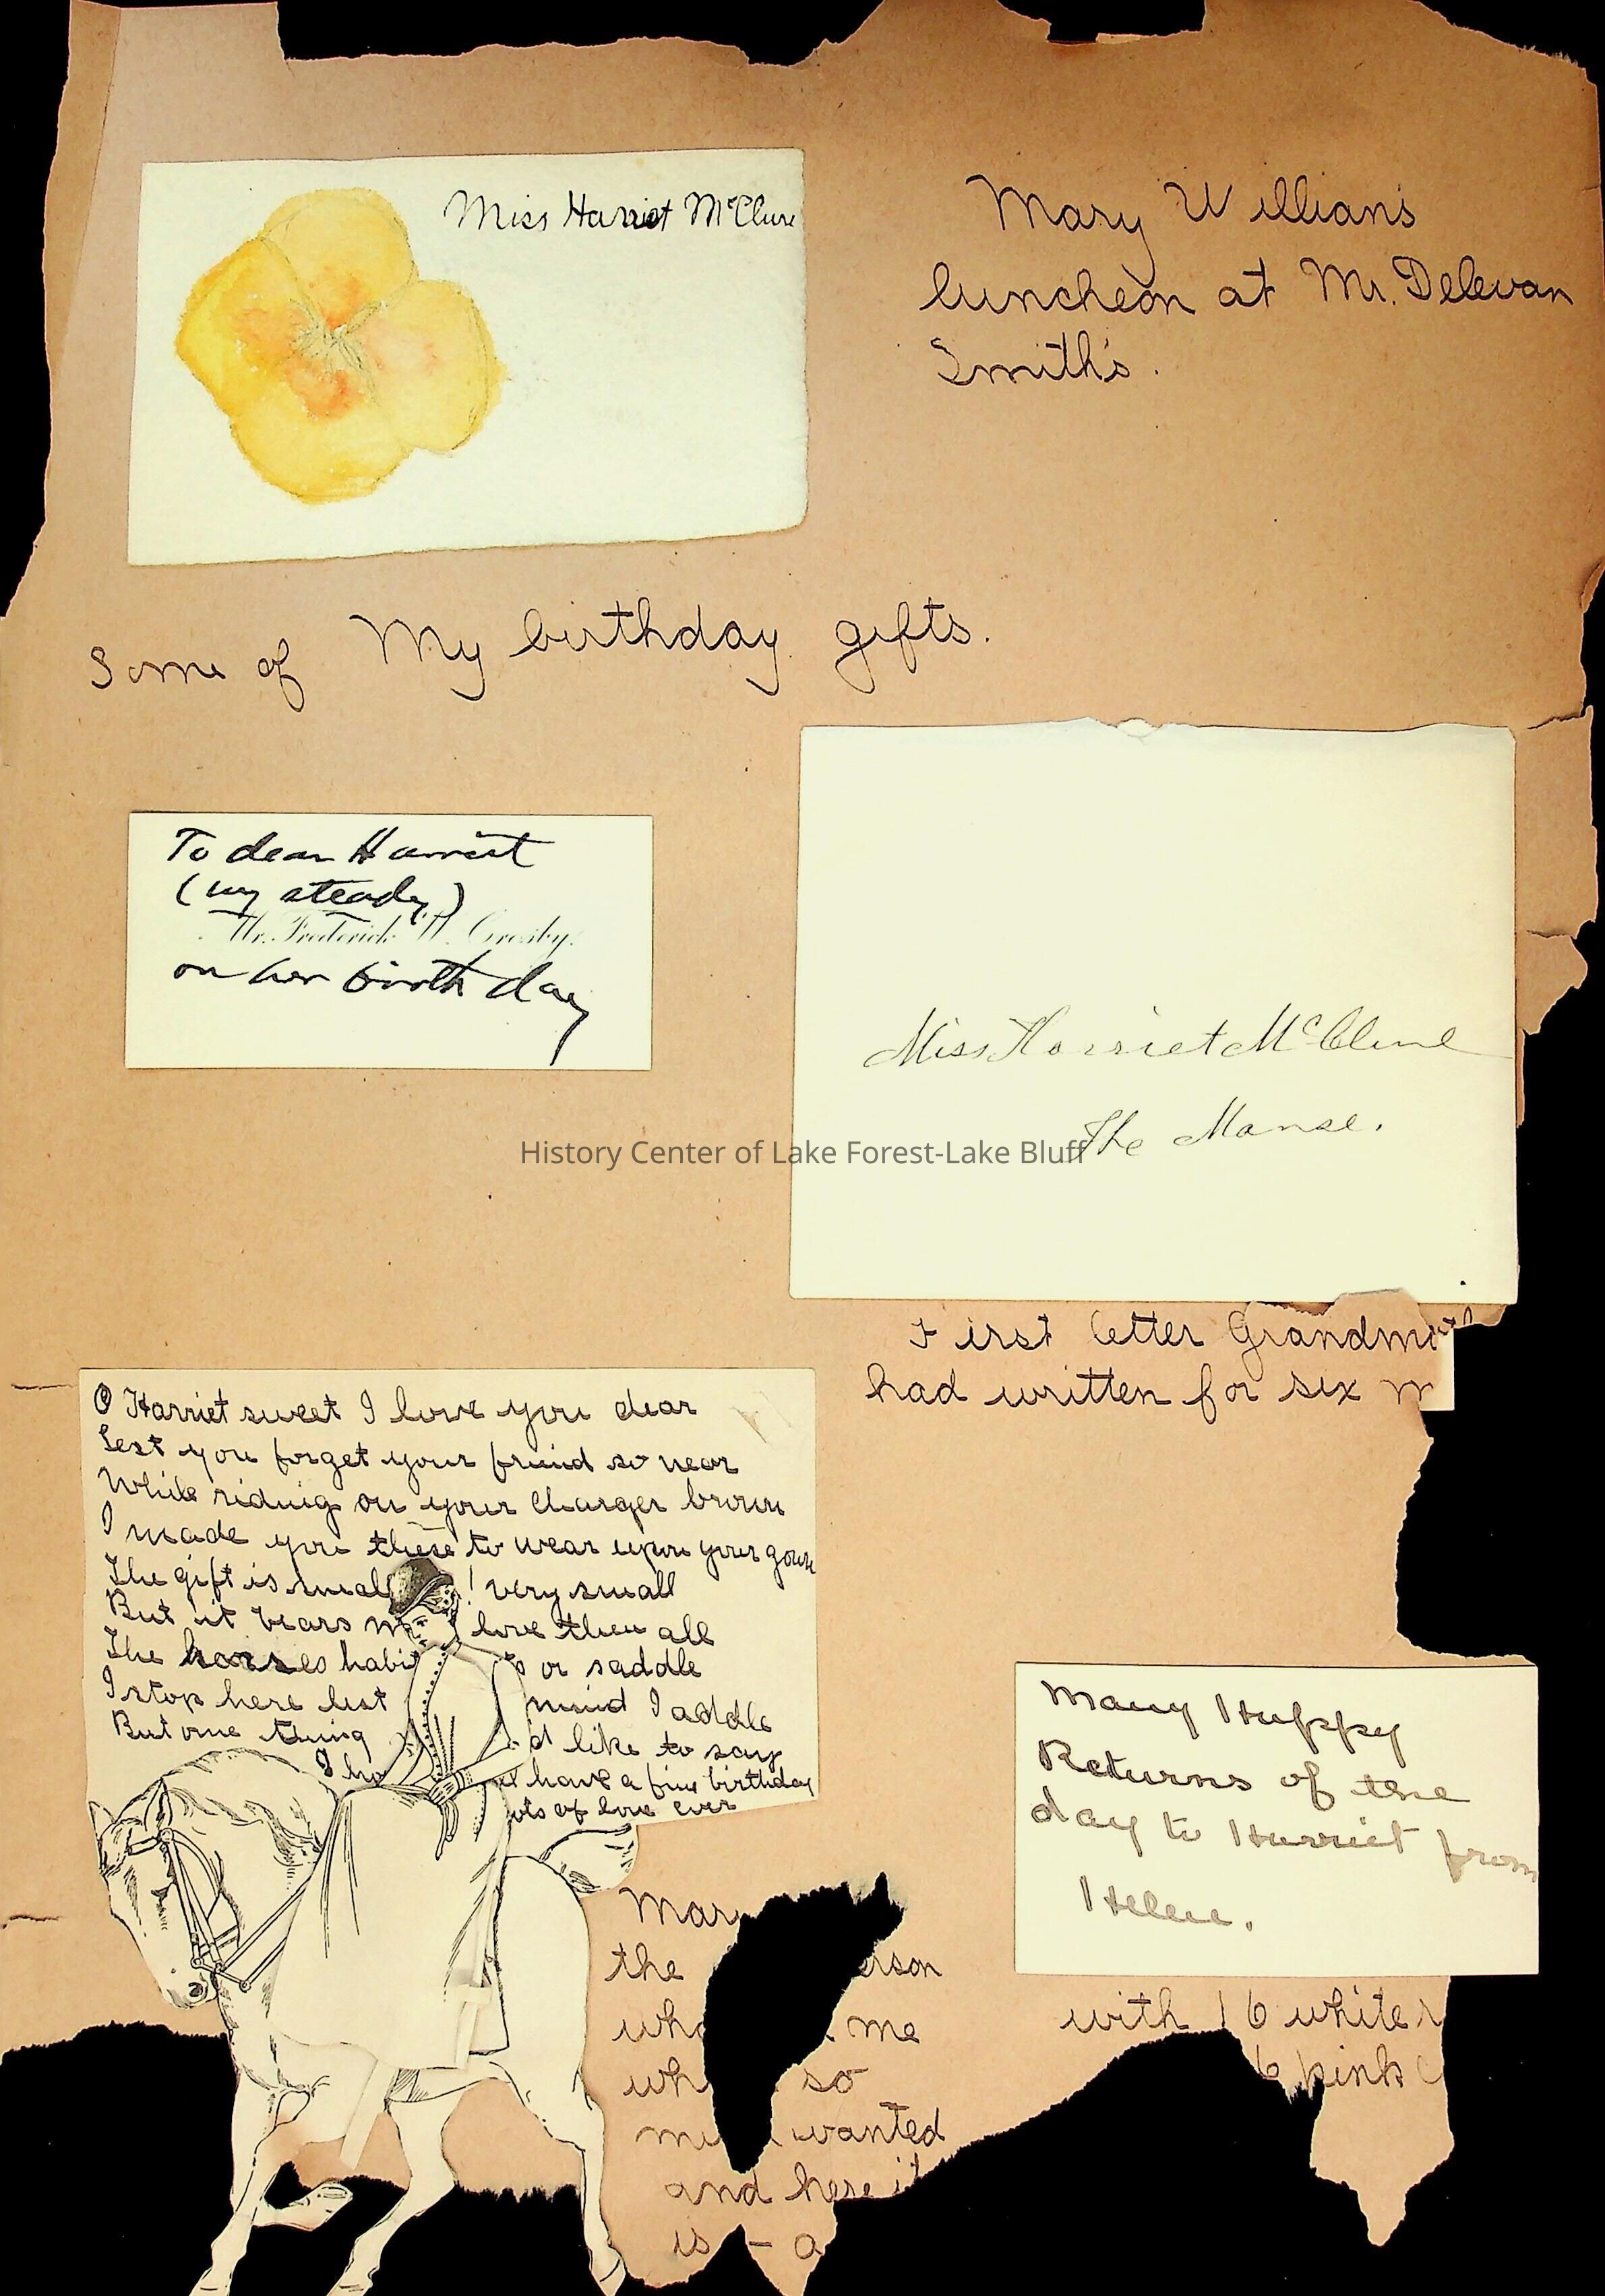 Miss Harriet McClure
Mary Willians
luncheon at Mr. Delevan
Smith's.
Some of My birthday gifts.
To dear Harriet
(my steady)
Mr. Frederick W. Crosby.
on her birthday
Miss Harriet McClure
The Manse.
History Center of Lake Forest-Lake Bluff
First letter Grandmo
had written for six
O Harriet sweet I love you dear
Lest you forget your friend so near
While riding on your charger brown
I made you these to wear upon your gown
The gift is small ! very small
But it bears love then all
The horses habi or saddle
I stop here lest mind I addle
But one thing I'd like to say
I ho have a fine birthday
lots of love ever
Many Happy
Returns of the
day to Harriet from
Helen.
with 16 white
6 pink
Mary
the
me
so
wanted
and here it
is - a